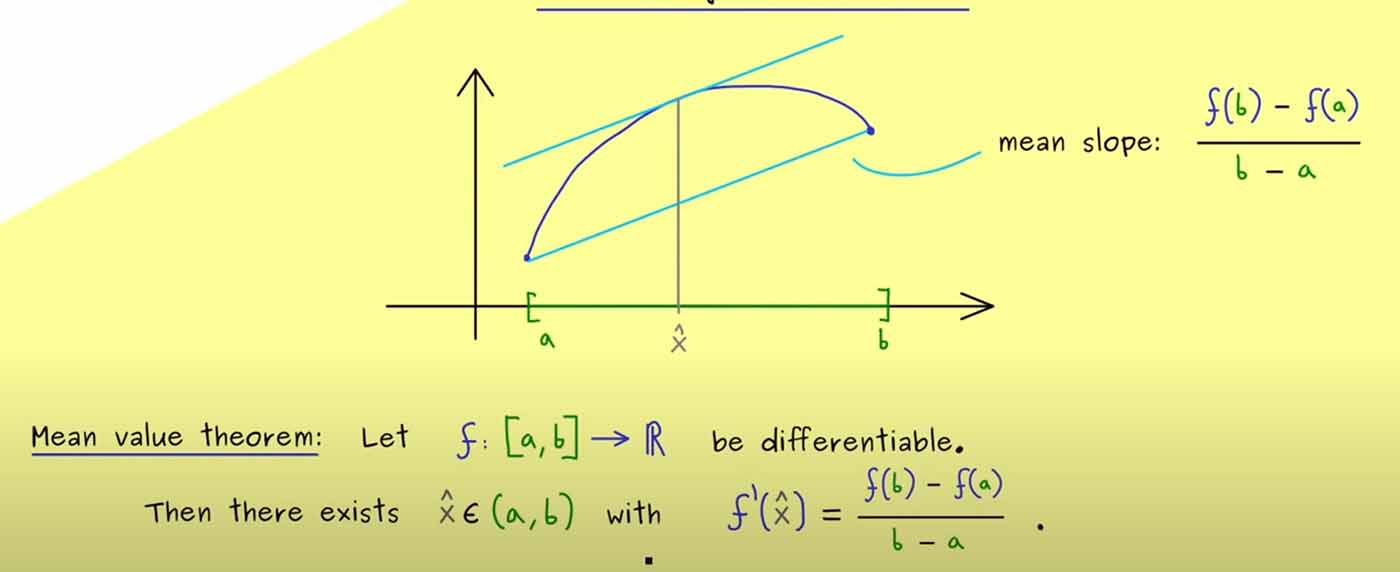 mean slope: f(b) - f(a) / b - a
a x̂ b
Mean value theorem: Let f: [a, b] → ℝ be differentiable.
Then there exists x̂ ∈ (a, b) with f'(x̂) = f(b) - f(a) / b - a .